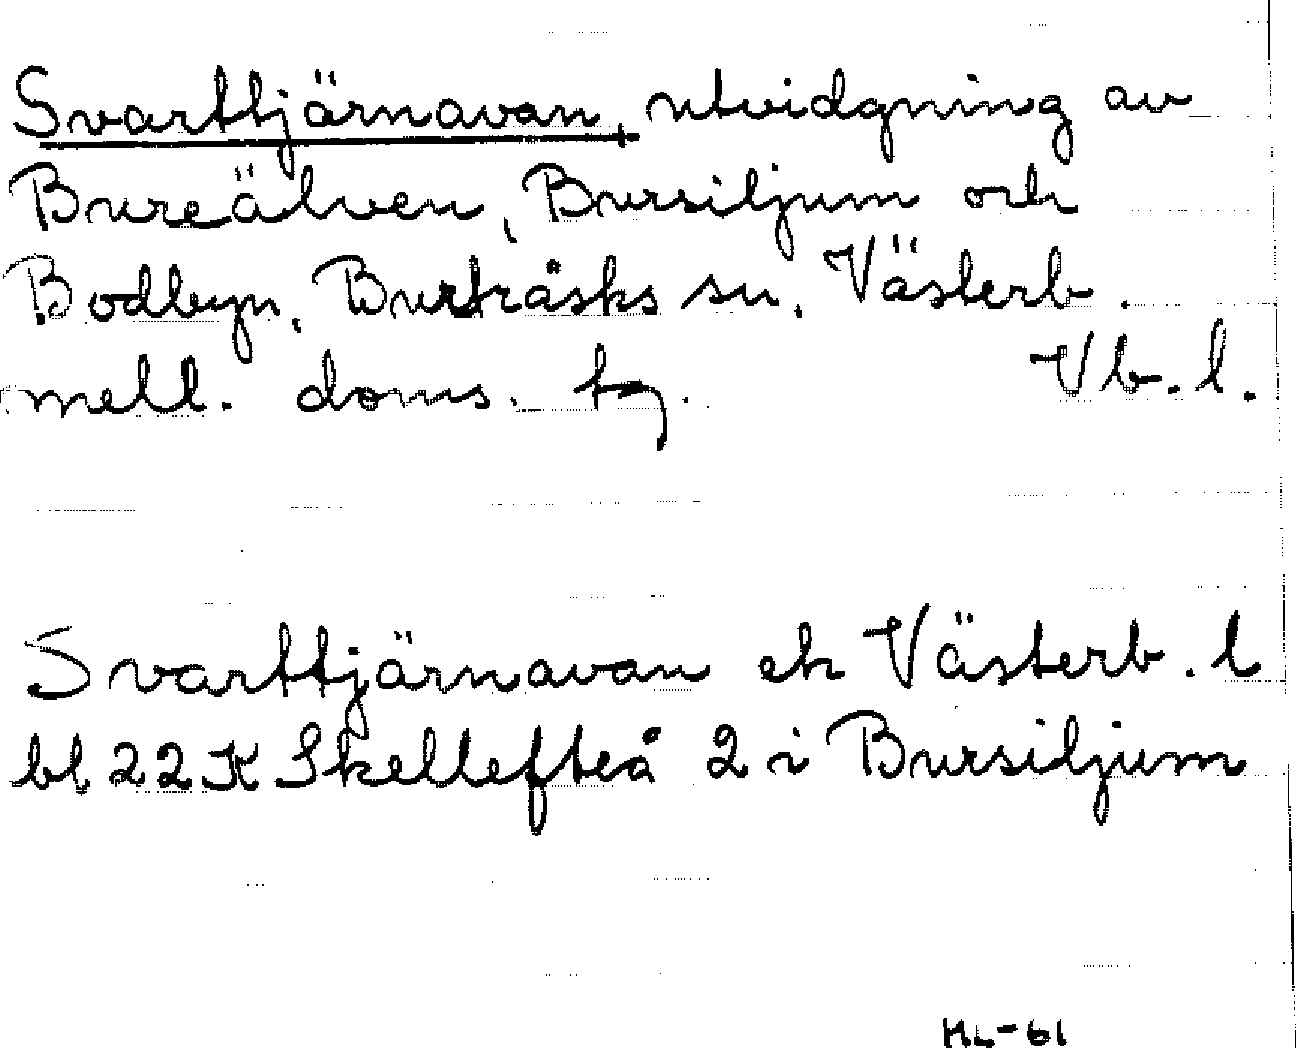 Svarttjärnavan, utvidgning av
Bureälven, Bursiljum och
Bodbyn, Burträsks sn, Västerb.
mell. doms. tg. Vb. l.
Svarttjärnavan ek Västerb. l
bl 22K Skellefteå 2 i Bursiljum
ML-61